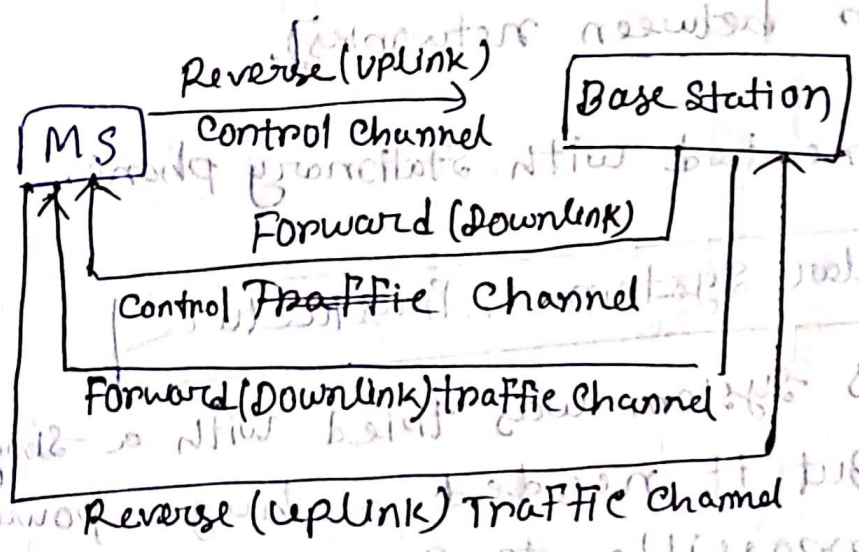 Reverse (Uplink)
Control Channel
MS
Base Station
Forward (Downlink)
Control Channel
Forward (Downlink) traffic Channel
Reverse (uplink) Traffic Channel